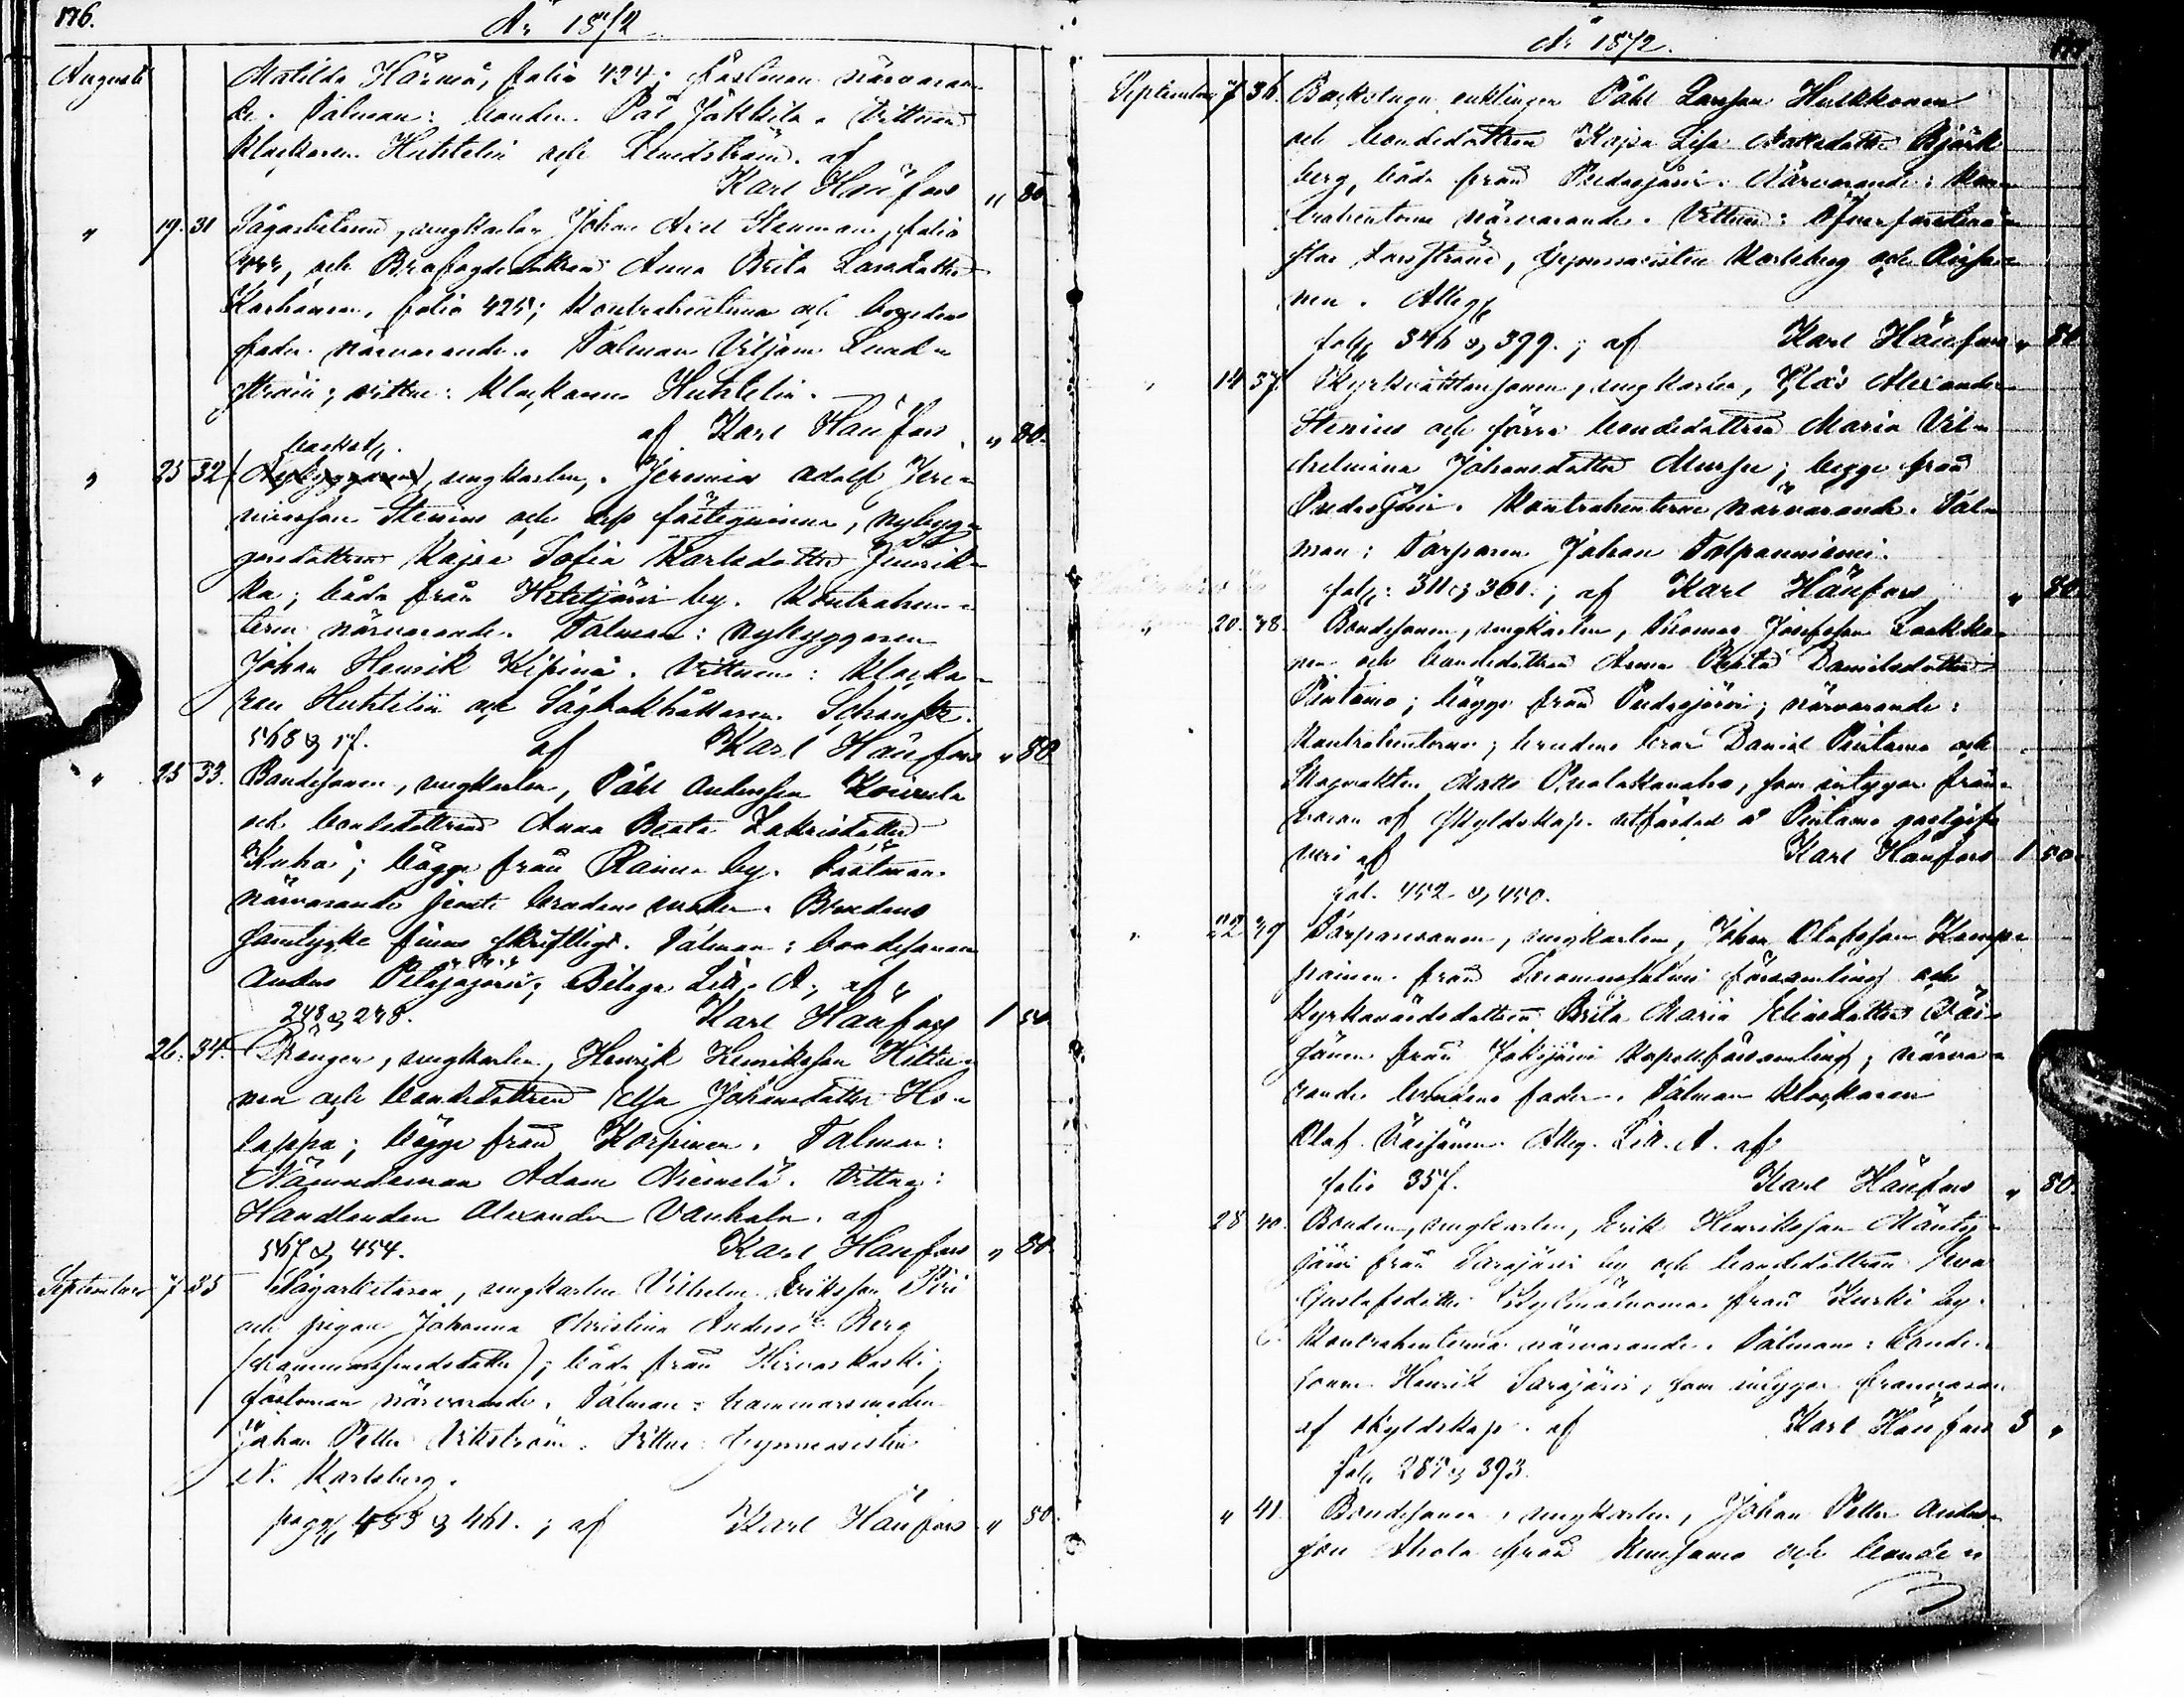 176.
År 1872
Augusti
Matilda Härmä, folio 424; fästman närvaran-
de. Talman: bonden Pål Jokkila. Vittnen
Klockaren Huhtelin och Lundström. af
Karl Hänfors " 80
" 19. 31 Sågarbetaren, ungkarlen Johan Axel Stenman, folio
och Brofogdedottren Anna Brita Larsdotter
Karhunen, folio 425; Kontrahenterna och brudens
fader närvarande. Talman Viljam Lund-
ström; vittne: Klockaren Huhtelin.
af Karl Hänfors " 80.
backst.
" 25 32 (Nybyggaren), ungkarlen, Jeremias Adolf Jere-
miasson Stenius och dess fästeqvinna, nybyg-
garedottren Kajsa Sofia Karlsdotter Juurik-
ka; båda från Hetejärvi by. Kontrahen-
terne närvarande. Talman: nybyggaren
Johan Henrik Kipinä. Vittnen: Klocka-
ren Huhtelin och Sågbokhållaren
568 & 17. af Karl Hänfors " 80
" 25 33. Bondesonen, ungkarlen, Påhl Andersson Koivula
och bondedottren Anna Beata Zakrisdotter
Kuha; bägge från Ranua by. Fästman
närvarande jemte brudens moder. Brudens
samtycke finns skriftligt. Talman: bondesonen
Anders Petäjäjärvi; Bilaga Litt. A; af
248 & 248. Karl Hänfors 1 50
26. 34. Drängen, ungkarlen, Henrik Henriksson Hiltu-
nen och bondedottren Elsa Johansdotter Ho-
lappa; bägge från Korpinen. Talman:
Nämndeman Adam Niemelä. Vittne:
Handlanden Alexander Vanhala. af
567 & 454. Karl Hänfors " 80
September 7 35 Sågarbetaren, ungkarlen Vilhelm Eriksson Piri
och pigan Johanna Christina Andersdr Berg
(hammarsmedsdotter); båda från Hirvaskoski;
fästman närvarande. Talman: hammarsmeden
Johan Petter Vikström. Vittne: Gymnasisten
N. Karlsberg.
pagg 455 & 461.; af Karl Hänfors " 80.
År 1872.
177.
September 7 36. Backstugu enklingen Påhl Larsson Hulkkonen
och bondedottren Kajsa Lisa Björk
berg, båda från Pudasjärvi. Närvarande: Kon-
trahenterne närvarande. Vittnen: Öfverforstmä-
star Gymnasisten Karlsberg och
nen. Atteg
folg 346 & 399.; af Karl Hänfors " 80
" 14 37. Kyrkvaktaresonen, ungkarlen, Klas Alexander
Stenius och förre bondedottren Maria Vil-
helmina Johansdotter Mursu; begge från
Pudasjärvi. Kontrahenterne närvarande. Tal-
man: Torparen Johan Tolpanniemi.
folg: 311 & 361.; af Karl Hänfors " 80.
" 20. 38. Bondesonen, ungkarlen, Thomas Josefsson Laakko-
nen och bondedottren Anna Brita Danielsdotter
Pintamo; bägge från Pudasjärvi; närvarande:
Kontrahenterne; brudens bror Daniel Pintamo och
Skogvakten Matts Puolakanaho, som intygar från-
varon af skyldskap. utfärdad å Pintamo gästgif-
veri af Karl Hänfors 1 50.
fol. 452 & 450.
" 22 39 Torparesonen, ungkarlen, Johan Olofsson Kemp-
painen från Suomussalmi församling och
Kyrkovärdsdottren Brita Maria Eliasdotter Väi-
sänen från Taivalkoski kapellförsamling; närva-
rande brudens fader. Talman Klockaren
Olof Väisänen. Atteg. Litt. A. af
folio 357. Karl Hänfors " 80.
28 40. Bonden, ungkarlen, Erik Henriksson Mänty-
järvi från Sarajärvi by och bondedottren Eva
Gustafsdotter Kylmäluoma från Kurki by.
Kontrahenterna närvarande. Talman: bonde-
sonen Henrik Sarajärvi, som intygar frånvaron
af skyldskap. af Karl Hänfors 3 "
folg 287 & 393.
" 41. Bondesonen, ungkarlen, Johan Petter Anders-
son Ahola från Kuusamo och bonde-